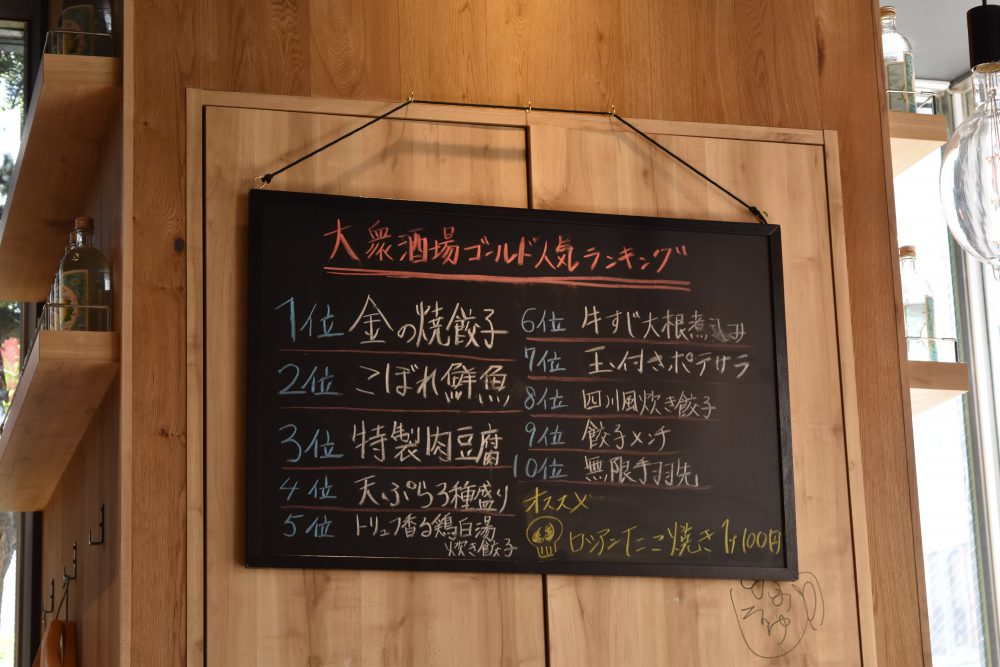 大衆酒場ゴールド人気ランキング
1位 金の焼餃子
2位 こぼれ鮮魚
3位 特製肉豆腐
4位 天ぷら3種盛り
5位 トリュフ香る鶏白湯
炊き餃子
6位 牛すじ大根煮込み
7位 玉付きポテサラ
8位 四川風炊き餃子
9位 餃子メンチ
10位 無限手羽先
オススメ
ロシアンたこ焼き 1ヶ100円